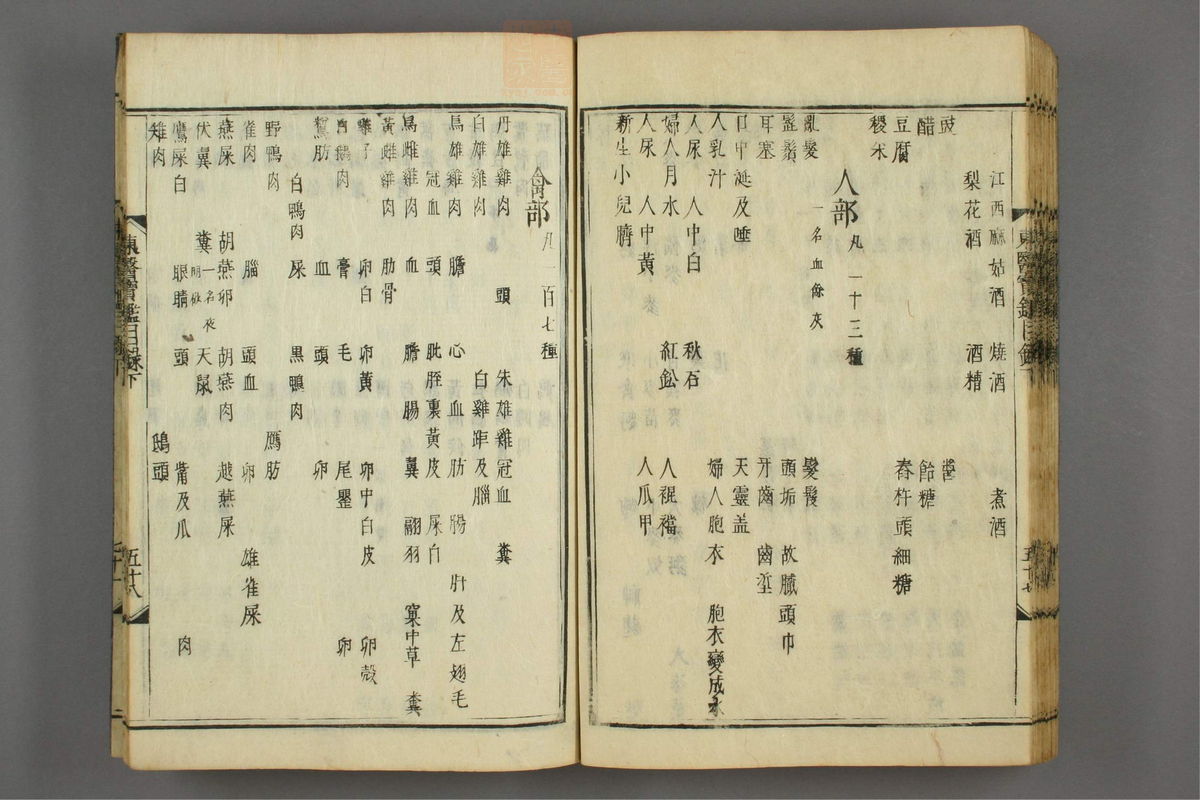 江西麻姑酒 燒酒 煮酒
梨花酒 酒糟
豉 醬
醋 飴糖
豆腐 舂杵頭細糖
稷米
人部 凡一十三種
亂髮 一名血餘灰 髮髲
髭鬚 頭垢 故膩頭巾
耳塞 牙齒 齒垽
口中涎及唾 天靈盖
人乳汁 婦人胞衣 胞衣變成水
人尿 人中白 秋石
婦人月水 紅鈆 人裩襠
人屎 人中黃 人爪甲
新生小兒臍
東醫寶鑑目錄下 五十七
禽部 凡一百七種
丹雄雞肉 頭 朱雄雞冠血 糞
白雄雞肉 白雞距及腦
烏雄雞肉 膽 心 血 肪 腸 肝及左翅毛
冠血 頭 肶胵裏黃皮 屎白
烏雌雞肉 血 膽 腸 翼 翮羽 窠中草 糞
黃雌雞肉 肋骨
雞子 卵白 卵黃 卵中白皮 卵殼
白鵝肉 膏 毛 尾罌 卵
鶩肪 血 頭 卵
白鴨肉 屎 黑鴨肉
野鴨肉 鴈肪
雀肉 腦 頭血 卵 雄雀屎
燕屎 胡燕卵 胡燕肉 越燕屎
伏翼 糞 一名夜明砂 天鼠
鷹屎白 眼睛 頭 觜及爪 肉
雉肉 鴟頭
東醫寶鑑目錄下 五十八